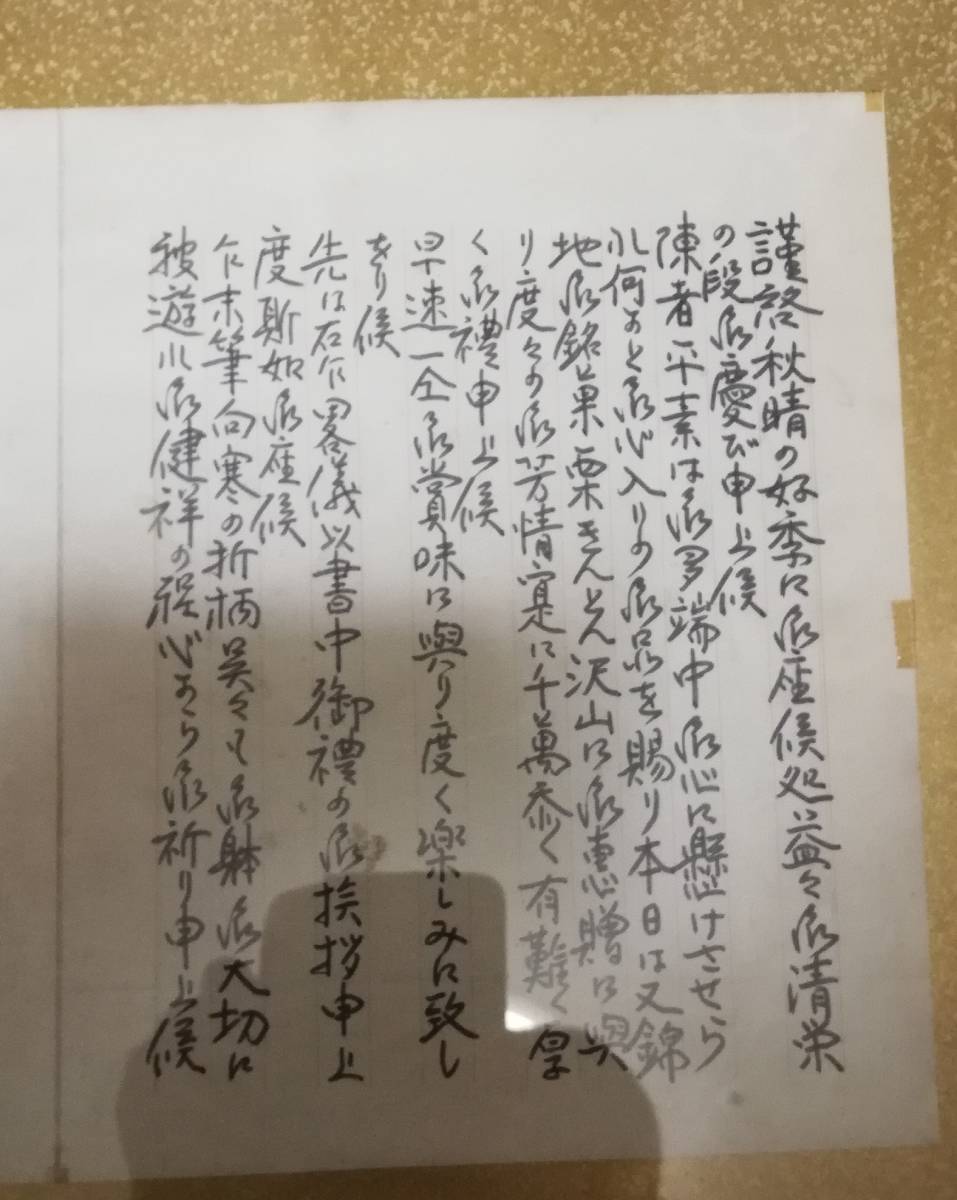 謹啓 秋晴の好季に御座候処益々御清栄
の段御慶び申上候
陳者平素は御多端中御心に懸けさせら
れ何かと御心入りの御品を賜り本日は又錦
地御銘菓栗きんとん沢山に御恵贈に與
り度々の御芳情寔に千萬忝く有難く厚
く御禮申上候
早速一仝御賞味に與り度く楽しみに致し
をり候
先は右乍畧儀以書中御禮の御挨拶申上
度斯如御座候
乍末筆向寒の折柄呉々も御躰御大切に
被遊れ御健祥の程心から御祈り申上候